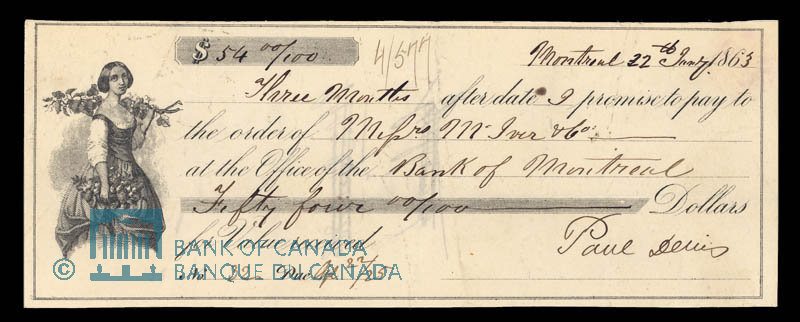 $ 54 00/100
4/577
Montreal 22th Jany. 1863
Three Months after date I promise to pay to
the order of Messrs McIver & Co.
at the Office of the Bank of Montreal
Fifty four 00/100 Dollars
for Value received
Paul Denis
No. 22 Due
© BANK OF CANADA
BANQUE DU CANADA